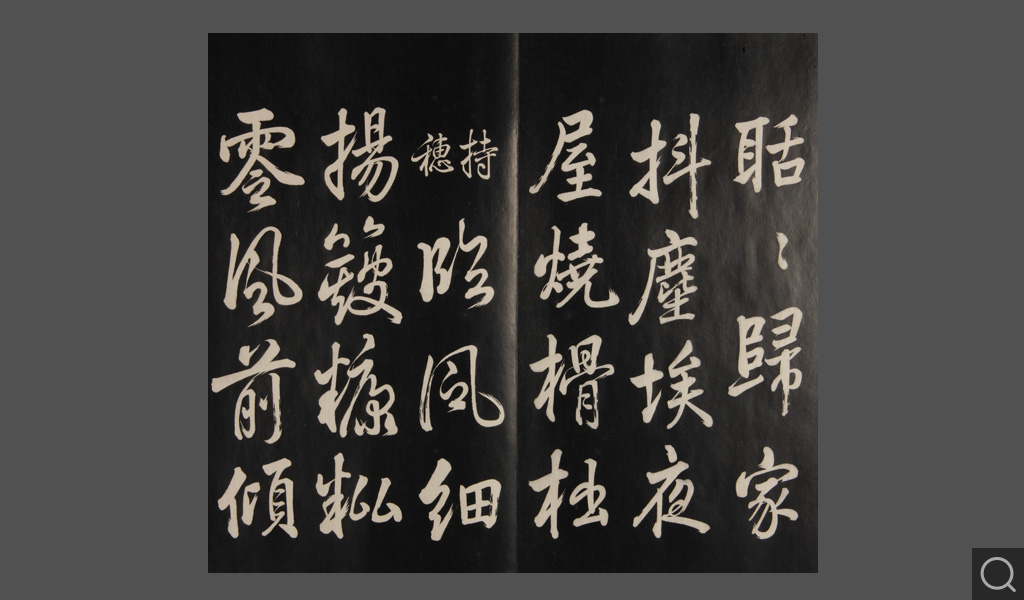 聒〻歸家
抖塵埃夜
屋燒榾柮
持穗臨風細
揚簸糠籸
零風前傾